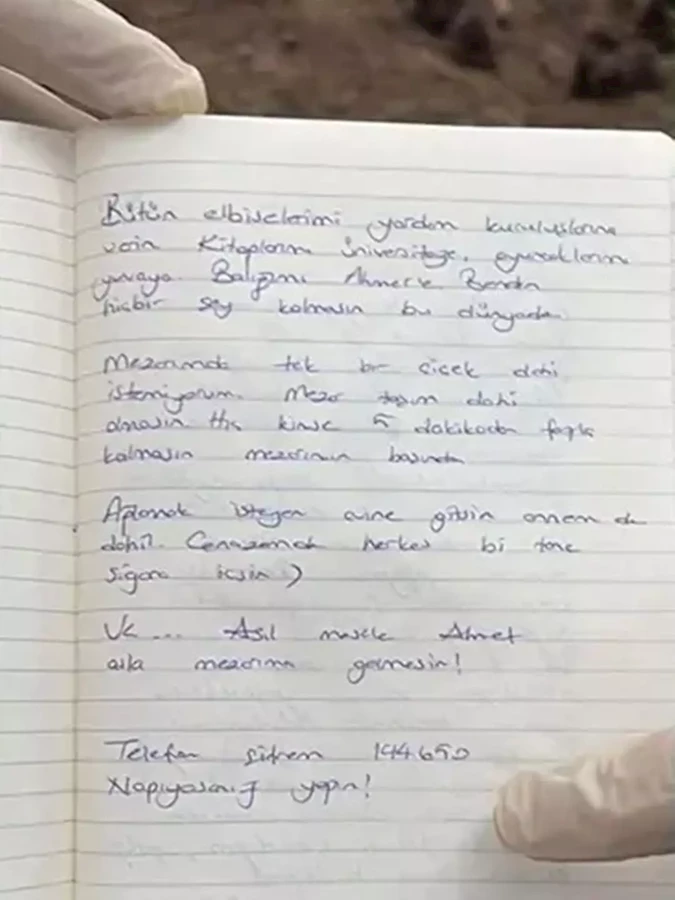 Bütün elbiselerimi yardım kuruluşlarına
verin Kitaplarımı üniversiteye, oyuncaklarımı
yuvaya Balığımı Ahmet'e Benden
hiçbir şey kalmasın bu dünyada
Mezarımda tek bir çiçek dahi
istemiyorum. Mezar taşım dahi
olmasın Hiç kimse 5 dakikadan fazla
kalmasın mezarımın başında
Ağlamak isteyen evine gitsin annem de
dahil. Cenazemde herkes bi tane
sigara içsin )
Ve ... Asıl mesele Ahmet
asla mezarıma gelmesin!
Telefon şifrem 144650
Napıyosanız yapın!